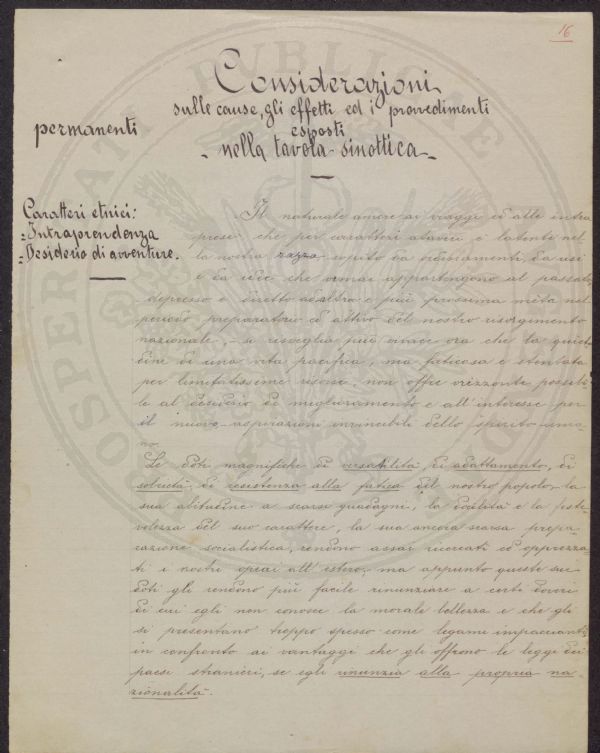 16
Considerazioni
sulle cause, gli effetti ed i provvedimenti
esposti
permanenti
- nella tavola-sinottica -
Caratteri etnici:
= Intraprendenza
= Desiderio di avventure.
Il naturale amore ai viaggi ed alle intra
prese che per caratteri atavici è latente nel
la nostra razza sopito da ordinamenti, da usi
e da idee che ormai appartengono al passato,
depresso e diretto ad altra e più prossima meta nel
periodo preparatorio ed attivo del nostro risorgimento
nazionale, si risveglia più vivace ora che la quiet
dine di una vita pacifica, ma faticosa e stentata
per limitatissime risorse, non offre orizzonte possibi
le al desiderio di miglioramento e all'interesse per
il nuovo aspirazioni invincibili dello spirito uma
no.
Le doti magnifiche di versatilità, di adattamento, di
sobrietà, di resistenza alla fatica del nostro popolo, la
sua abitudine a scarsi guadagni, la docilità e la festo
volezza del suo carattere, la sua ancora scarsa prepa
razione socialistica, rendono assai ricercati ed apprezza
ti i nostri operai all'estero; ma appunto queste sue
doti gli rendono più facile rinunziare a certi doveri
di cui egli non conosce la morale bellezza e che gli
si presentano troppo spesso come legami impaccianti
in confronto ai vantaggi che gli offrono le leggi dei
paesi stranieri, se egli rinunzia alla propria na
zionalità.
PROSPERITATI PUBLICAE